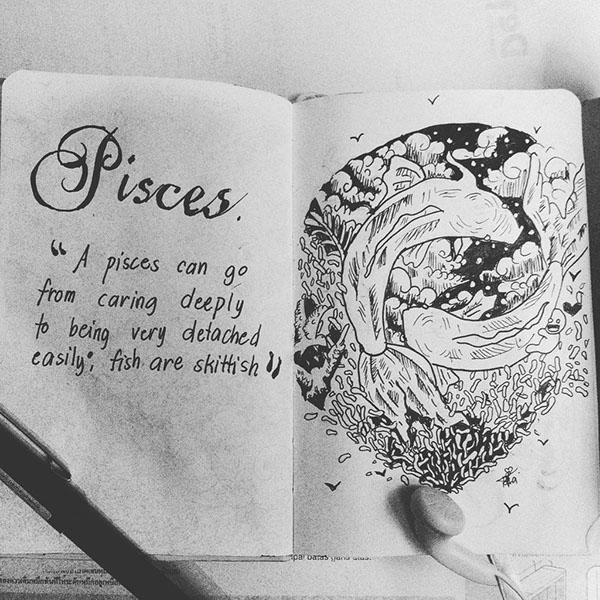 Pisces.
“ A pisces can go
from caring deeply
to being very detached
easily; fish are skittish ”